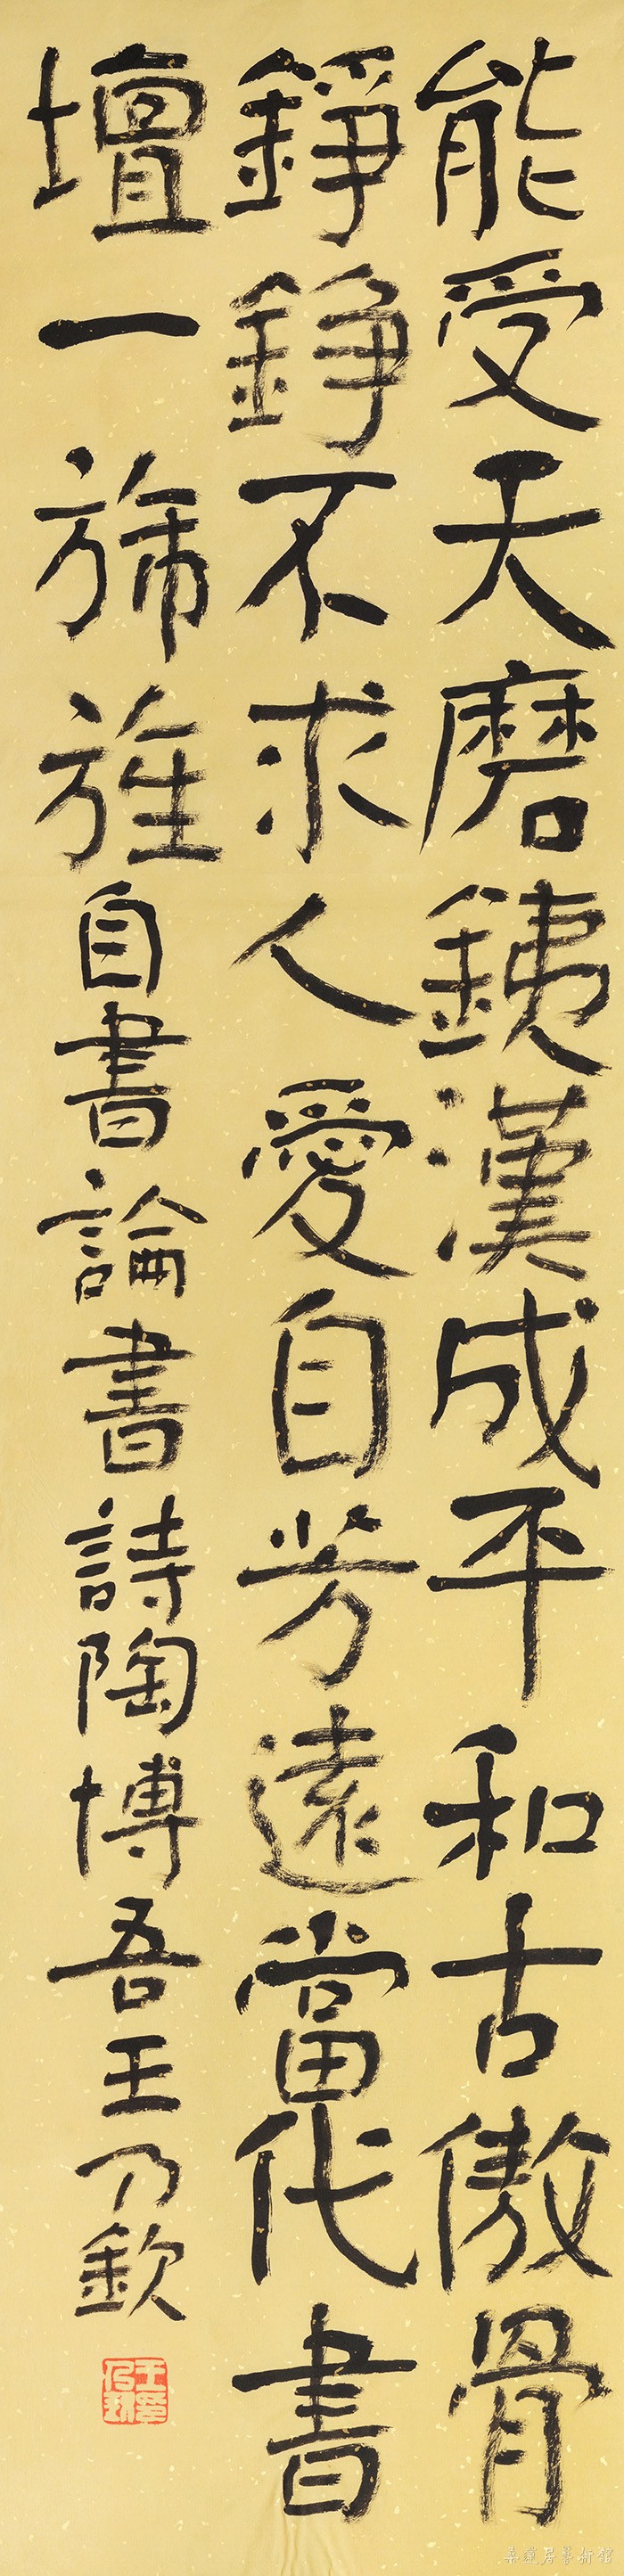 能受天磨銕漢成平和古傲骨
錚錚不求人愛自芳遠當代書
壇一旆旌自書論書詩陶博吾王乃欽
桑蓮居藝術館